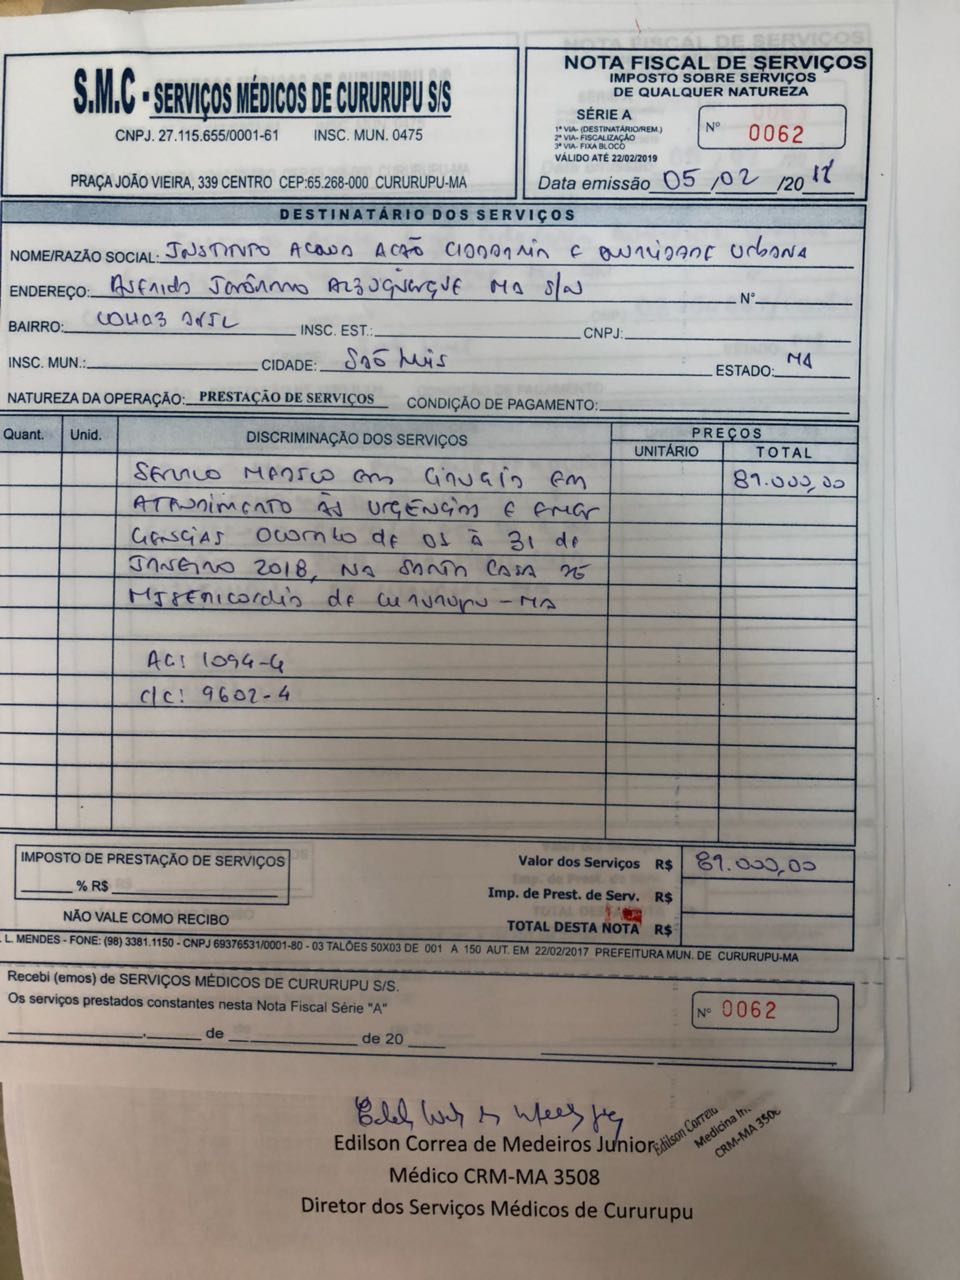 S.M.C - SERVIÇOS MÉDICOS DE CURURUPU S/S
CNPJ. 27.115.655/0001-61 INSC. MUN. 0475
PRAÇA JOÃO VIEIRA, 339 CENTRO CEP:65.268-000 CURURUPU-MA
NOTA FISCAL DE SERVIÇOS
IMPOSTO SOBRE SERVIÇOS
DE QUALQUER NATUREZA
SÉRIE A
1ª VIA- (DESTINATÁRIO/REM.)
2ª VIA- FISCALIZAÇÃO
3ª VIA- FIXA BLOCO
VÁLIDO ATÉ 22/02/2019
Nº 0062
Data emissão 05/02/2018
DESTINATÁRIO DOS SERVIÇOS
NOME/RAZÃO SOCIAL: INSTITUTO ACQUA AÇÃO CIDADANIA E QUALIDADE URBANA
ENDEREÇO: AVENIDA JERÔNIMO ALBUQUERQUE MA S/N Nº
BAIRRO: INSC. EST.: CNPJ:
INSC. MUN.: CIDADE: SÃO LUIS ESTADO: MA
NATUREZA DA OPERAÇÃO: PRESTAÇÃO DE SERVIÇOS CONDIÇÃO DE PAGAMENTO:
Quant. Unid. DISCRIMINAÇÃO DOS SERVIÇOS PREÇOS
UNITÁRIO TOTAL
SERVIÇO MÉDICO em Cirurgia em 89.000,00
ATENDIMENTO ÀS URGÊNCIAS E EMER
GENCIAS OCORRIDO de 01 à 31 de
JANEIRO 2018, NA SANTA CASA DE
MISERICORDIA de CURURUPU-MA
AG: 1094-4
C/C: 9602-4
IMPOSTO DE PRESTAÇÃO DE SERVIÇOS
% R$
NÃO VALE COMO RECIBO
Valor dos Serviços R$ 89.000,00
Imp. de Prest. de Serv. R$
TOTAL DESTA NOTA R$
L. MENDES - FONE: (98) 3381.1150 - CNPJ 69376531/0001-80 - 03 TALÕES 50X03 DE 001 A 150 AUT. EM 22/02/2017 PREFEITURA MUN. DE CURURUPU-MA
Recebi (emos) de SERVIÇOS MÉDICOS DE CURURUPU S/S.
Os serviços prestados constantes nesta Nota Fiscal Série "A"
de de 20
Nº 0062
Edilson Correa de Medeiros Junior
Médico CRM-MA 3508
Diretor dos Serviços Médicos de Cururupu
Edilson Correia
Medicina In
CRM-MA 3508